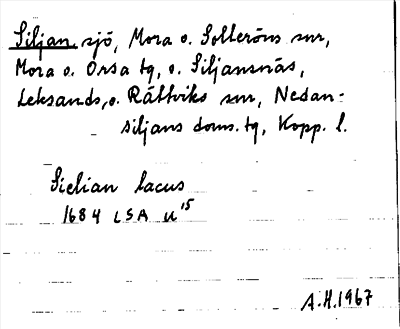 Siljan sjö, Mora o. Solleröns snr,
Mora o. Orsa tg, o. Siljansnäs,
Leksands, o. Rättviks snr, Nedan-
siljans doms. tg, Kopp. l.
Sielian lacus
1684 LSA U15
A.H. 1967